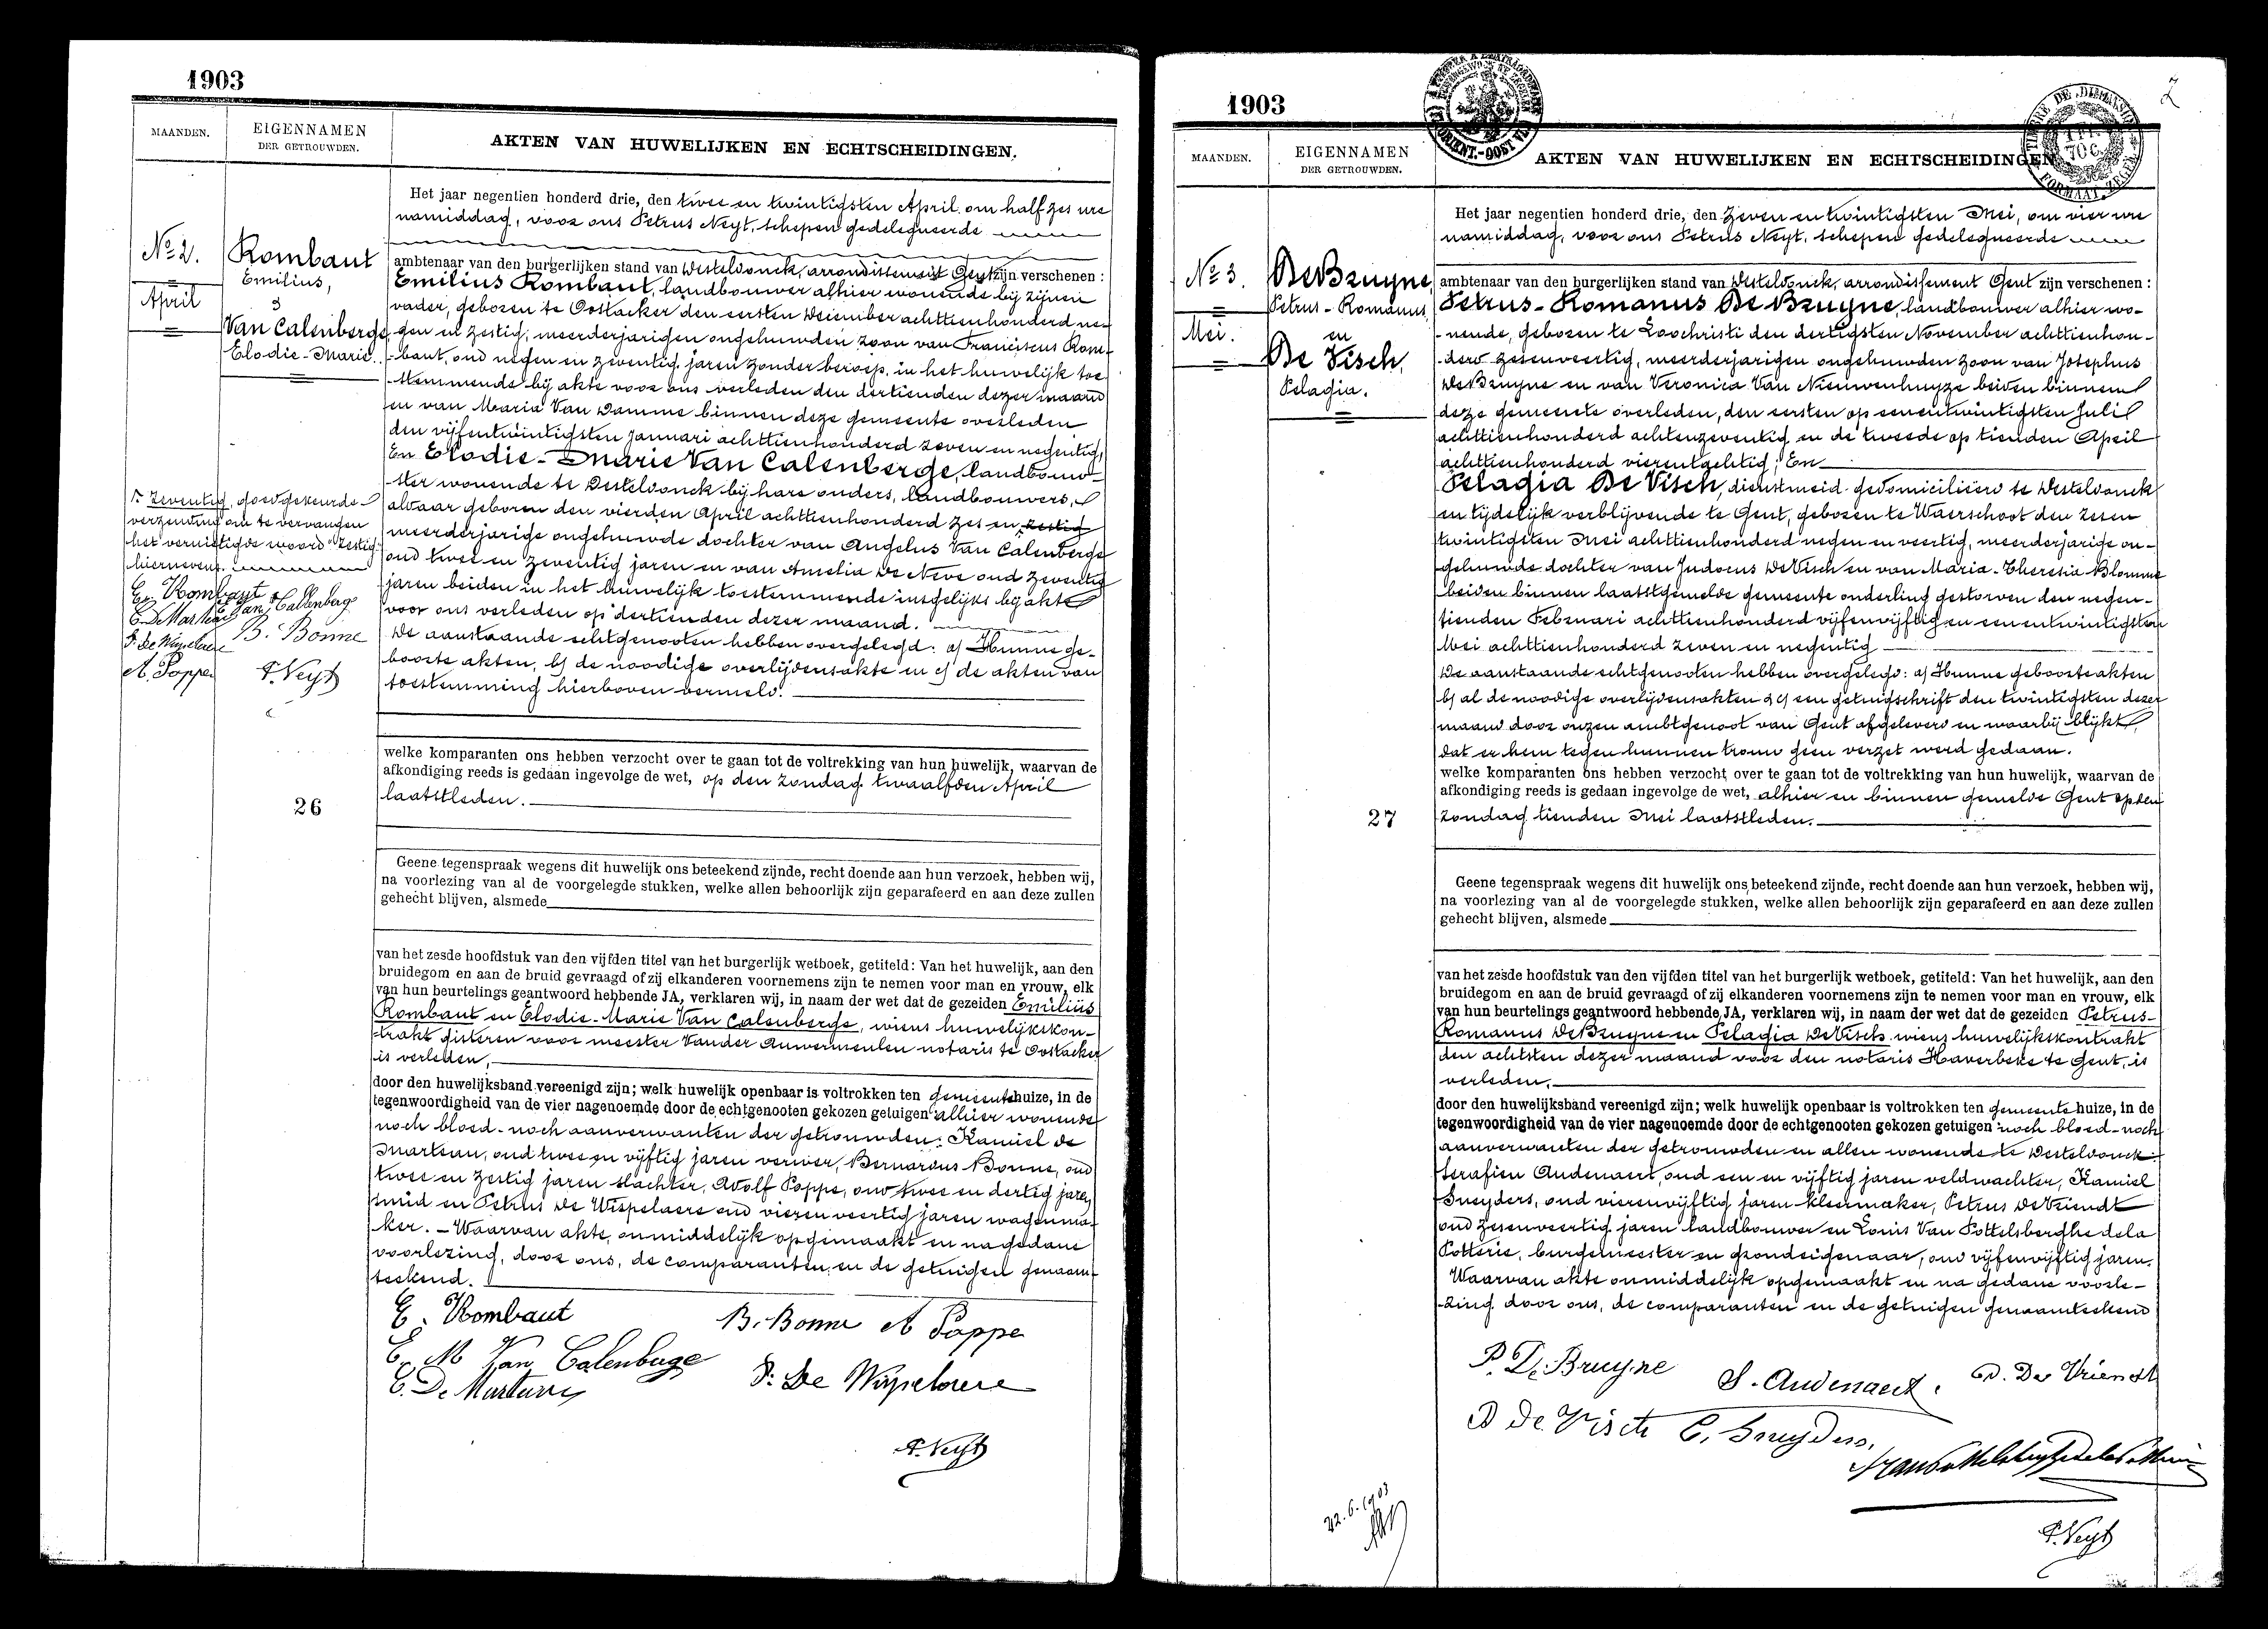 1903
MAANDEN.
EIGENNAMEN
DER GETROUWDEN.
AKTEN VAN HUWELIJKEN EN ECHTSCHEIDINGEN.
No 2.
April
Rombaut
Emilius,
&
Van Calenberge
Elodie-Marie.
Het jaar negentien honderd drie, den twee en twintigsten April om half zes ure
namiddag, voor ons Petrus Neyt, schepen gedelegueerde
ambtenaar van den burgerlijken stand van Desteldonck, arrondissement Gent zijn verschenen :
Emilius Rombaut, landbouwer alhier wonende bij zijnen
vader, geboren te Oostacker den eersten December achttienhonderd ne-
gen en zestig, meerderjarigen ongehuwden zoon van Franciscus Rom-
-baut, oud negen en zeventig jaren zonder beroep, in het huwelijk toe
-stemmende bij akte voor ons verleden den dertienden dezer maand
en van Maria Van Damme binnen deze gemeente overleden
den vijfentwintigsten Januari achttienhonderd zeven en negentig,
En Elodie-Marie Van Calenberge, landbouw-
-ster wonende te Desteldonck bij hare ouders, landbouwers,
aldaar geboren den vierden April achttienhonderd zes en zestig
meerderjarige ongehuwde dochter van Angelus Van Calenberge
oud twee en zeventig jaren en van Amelia De Neve oud zeventig
jaren beiden in het huwelijk toestemmende insgelijks bij akte
voor ons verleden op dertienden dezer maand.
De aanstaande echtgenooten hebben overgelegd: a) Hunne ge-
booste akten, b) de noodige overlijdensakte en c) de akten van
toestemming hierboven vermeld.
1° zeventig, goedgekeurde
verzending om te vervangen
het vernietigde woord "zestig"
hiernevens.
Em. Rombaut
E. Van Callenberge
C. De Marteau
B. Bonne
P. De Wispelaere
A. Poppe
P. Neyt
welke komparanten ons hebben verzocht over te gaan tot de voltrekking van hun huwelijk, waarvan de
afkondiging reeds is gedaan ingevolge de wet, op den zondag twaalfden April
laatstleden.
26
Geene tegenspraak wegens dit huwelijk ons beteekend zijnde, recht doende aan hun verzoek, hebben wij,
na voorlezing van al de voorgelegde stukken, welke allen behoorlijk zijn geparafeerd en aan deze zullen
gehecht blijven, alsmede
van het zesde hoofdstuk van den vijfden titel van het burgerlijk wetboek, getiteld: Van het huwelijk, aan den
bruidegom en aan de bruid gevraagd of zij elkanderen voornemens zijn te nemen voor man en vrouw, elk
van hun beurtelings geantwoord hebbende JA, verklaren wij, in naam der wet dat de gezeiden Emilius
Rombaut en Elodie-Marie Van Calenberge, wiens huwelijkskon-
-trakt gisteren voor meester Vander Auwermeulen notaris te Oostacker
is verleden,
door den huwelijksband vereenigd zijn; welk huwelijk openbaar is voltrokken ten gemeentehuize, in de
tegenwoordigheid van de vier nagenoemde door de echtgenooten gekozen getuigen alhier wonende
noch bloed- noch aanverwanten der getrouwden: Kamiel de
Marteau, oud twee en vijftig jaren verwer, Bernardus Bonne, oud
twee en zestig jaren slachter, Adolf Poppe, oud twee en dertig jaren
smid en Petrus De Wispelaere oud vier en veertig jaren wagenma-
ker. – Waarvan akte, onmiddelijk opgemaakt en na gedane
voorlezing, door ons, de comparanten en de getuigen genaam-
teekend.
E. Rombaut
B. Bonne A Poppe
E. M Van Calenberge
P. De Wispelaere
C. De Marteau
P. Neyt
1903
2
MAANDEN.
EIGENNAMEN
DER GETROUWDEN.
AKTEN VAN HUWELIJKEN EN ECHTSCHEIDINGEN
TIMBRE DE DIMENSION
1 FR.
70 C.
FORMAAT ZEGEL
No 3.
Mei.
De Bruyne
Petrus-Romanus
en
De Visch,
Pelagia.
Het jaar negentien honderd drie, den zeven en twintigsten Mei, om vier ure
namiddag, voor ons Petrus Neyt, schepen gedelegueerde
ambtenaar van den burgerlijken stand van Desteldonck, arrondissement Gent zijn verschenen :
Petrus-Romanus De Bruyne, landbouwer alhier wo-
-nende, geboren te Loochristi den dertigsten November achttienhon-
-derd zesenveertig, meerderjarigen ongehuwden zoon van Josephus
De Bruyne en van Veronica Van Nieuwenhuyze beiden binnen
deze gemeente overleden, den eersten op eenentwintigsten Juli
achttienhonderd achtenzeventig en de tweede op tienden April
achttienhonderd vierentachtig; En
Pelagia De Visch, dienstmeid gedomicilieerd te Desteldonck
en tijdelijk verblijvende te Gent, geboren te Waerschoot den zesen
twintigsten Mei achttienhonderd negen en veertig, meerderjarige on-
gehuwde dochter van Judocus De Visch en van Maria-Theresia Blomme
beiden binnen laatstgemelde gemeente onderling gestorven den negen-
tienden Februari achttienhonderd vijfenvijftig en eenentwintigsten
Mei achttienhonderd zeven en negentig
De aanstaande echtgenooten hebben overgelegd: a) Hunne geboosteakten
b) al de noodige overlijdensakten & c) een getuigschrift den twintigsten dezer
maand door onzen ambtgenoot van Gent afgeleverd en waarbij blijkt
dat er hem tegen hunnen trouw geen verzet werd gedaan.
welke komparanten ons hebben verzocht over te gaan tot de voltrekking van hun huwelijk, waarvan de
afkondiging reeds is gedaan ingevolge de wet, alhier en binnen gemelde Gent op den
zondag tienden Mei laatstleden.
27
Geene tegenspraak wegens dit huwelijk ons beteekend zijnde, recht doende aan hun verzoek, hebben wij,
na voorlezing van al de voorgelegde stukken, welke allen behoorlijk zijn geparafeerd en aan deze zullen
gehecht blijven, alsmede
van het zesde hoofdstuk van den vijfden titel van het burgerlijk wetboek, getiteld: Van het huwelijk, aan den
bruidegom en aan de bruid gevraagd of zij elkanderen voornemens zijn te nemen voor man en vrouw, elk
van hun beurtelings geantwoord hebbende JA, verklaren wij, in naam der wet dat de gezeiden Petrus-
Romanus De Bruyne en Pelagia De Visch wiens huwelijkskontrakt
den achtsten dezer maand voor den notaris Haverbeke te Gent, is
verleden,
door den huwelijksband vereenigd zijn; welk huwelijk openbaar is voltrokken ten gemeente huize, in de
tegenwoordigheid van de vier nagenoemde door de echtgenooten gekozen getuigen noch bloed-noch
aanverwanten der getrouwden en allen wonende te Desteldonck:
Serafien Audenaert, oud een en vijftig jaren veldwachter, Kamiel
Sneyders, oud vierenvijftig jaren kleermaker, Petrus De Vriendt
oud zesenveertig jaren landbouwer en Louis Van Pottelsberghe dela
Potterie, burgemeester en grondeigenaar, oud vijfenvijftig jaren.
Waarvan akte onmiddelijk opgemaakt en na gedane voorle-
-zing door ons, de comparanten en de getuigen genaamteekend
P. De Bruyne
S. Audenaert.
P. De Vriendt
P De Visch
C. Sneyders.
P. Neyt
22.6.1903